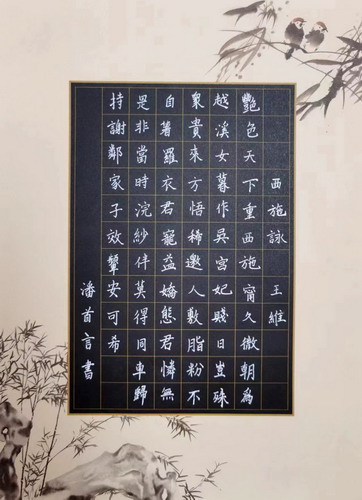 西施詠 王維
艷色天下重西施甯久微朝為
越溪女暮作吳宮妃賤日豈殊
衆貴來方悟稀邀人敷脂粉不
自著羅衣君寵益嬌態君憐無
是非當時浣紗伴莫得同車歸
持謝鄰家子效顰安可希
潘首言書